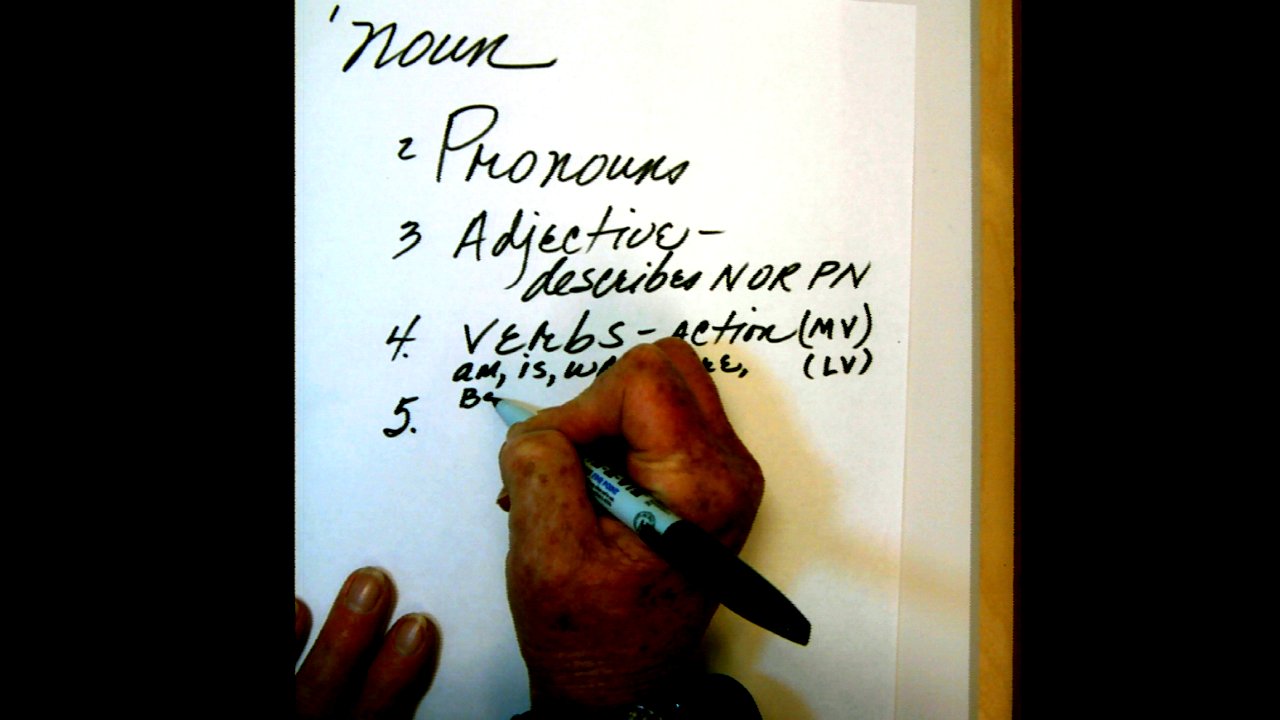 1 noun
2 Pronouns
3 Adjective -
describes N OR PN
4. Verbs - Action (MV)
am, is, (LV)
Be
5.